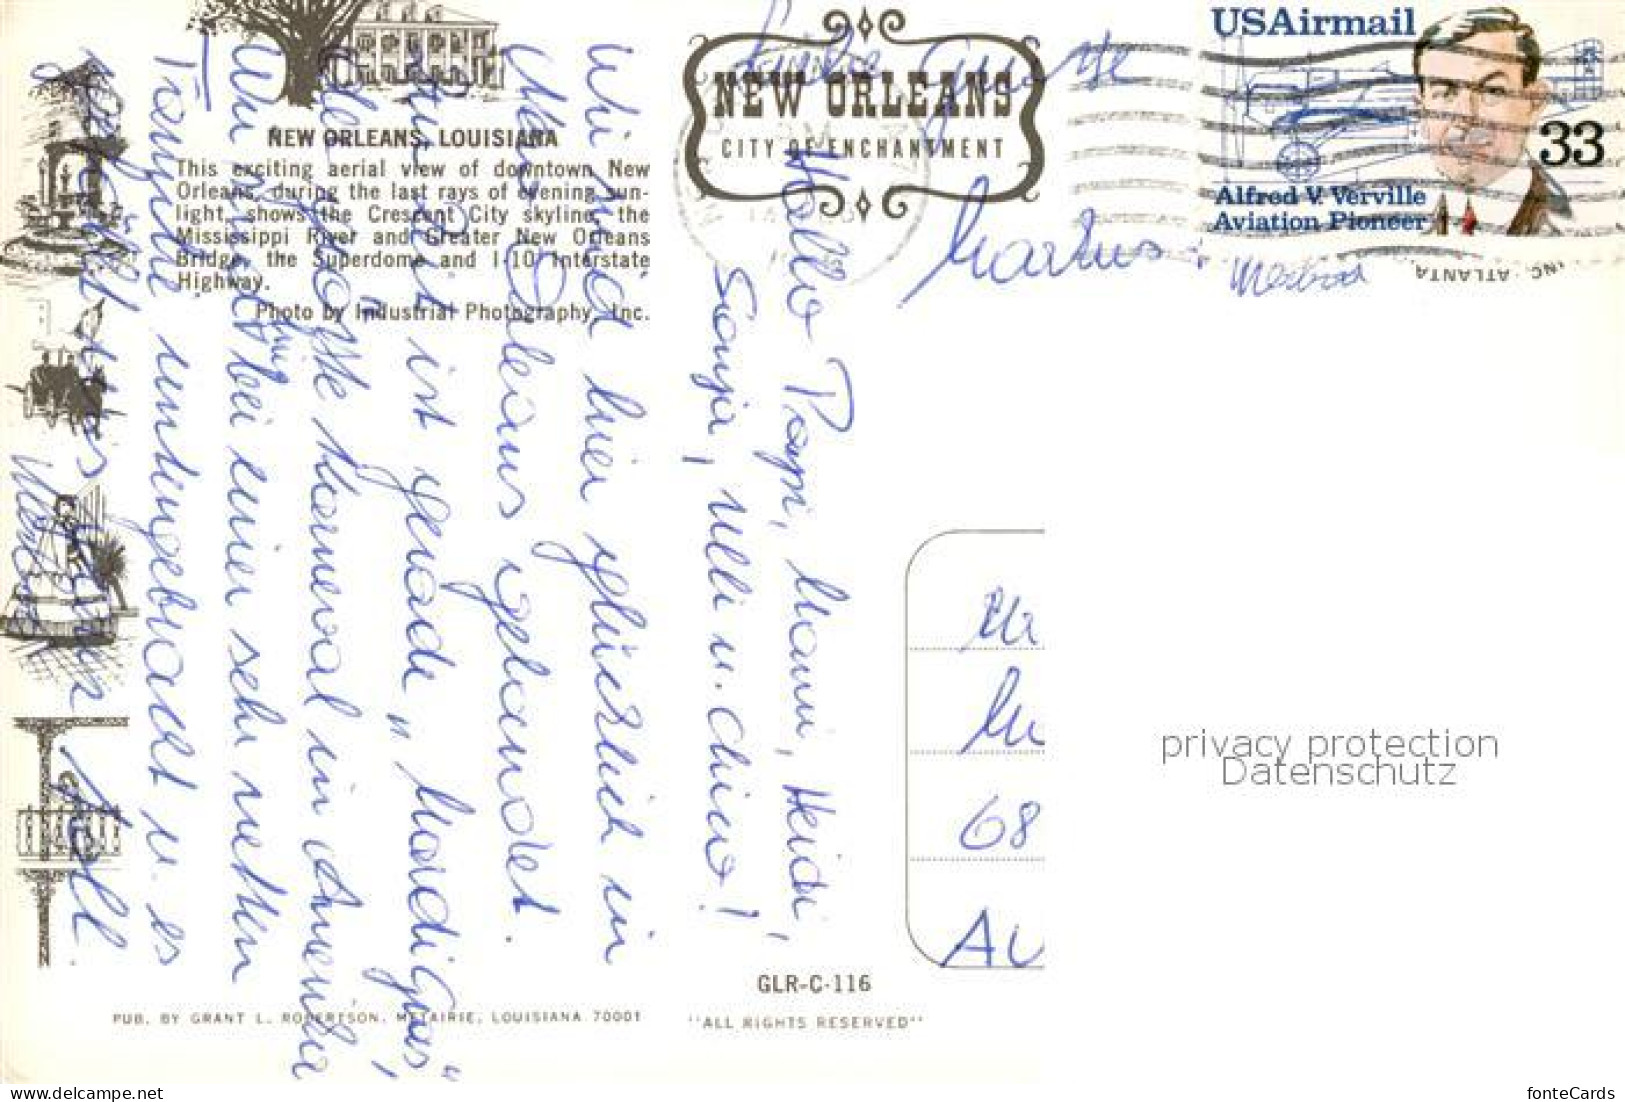 NEW ORLEANS, LOUISIANA
This exciting aerial view of downtown New
Orleans, during the last rays of evening sun-
light, shows the Crescent City skyline, the
Mississippi River and Greater New Orleans
Bridge, the Superdome and I-10 Interstate
Highway.
Photo by Industrial Photography, Inc.
NEW ORLEANS
CITY OF ENCHANTMENT
USAirmail
33
Alfred V. Verville
Aviation Pioneer
INC. ATLANTA
Liebe Grüsse
Markus
Hallo Papi, Mami, Heidi,
Sonja, Ulli u. Chino!
Wir sind hier glücklich in
New Orleans gelandet.
Zur Zeit ist gerade "Mardi Gras",
der größte Karneval in Amerika
Wir sind bei einer sehr netten
Familie untergebracht u. es
gefällt uns ganz toll.
68
AU
GLR-C-116
PUB. BY GRANT L. ROBERTSON, METAIRIE, LOUISIANA 70001
"ALL RIGHTS RESERVED"
privacy protection
Datenschutz
fonteCards